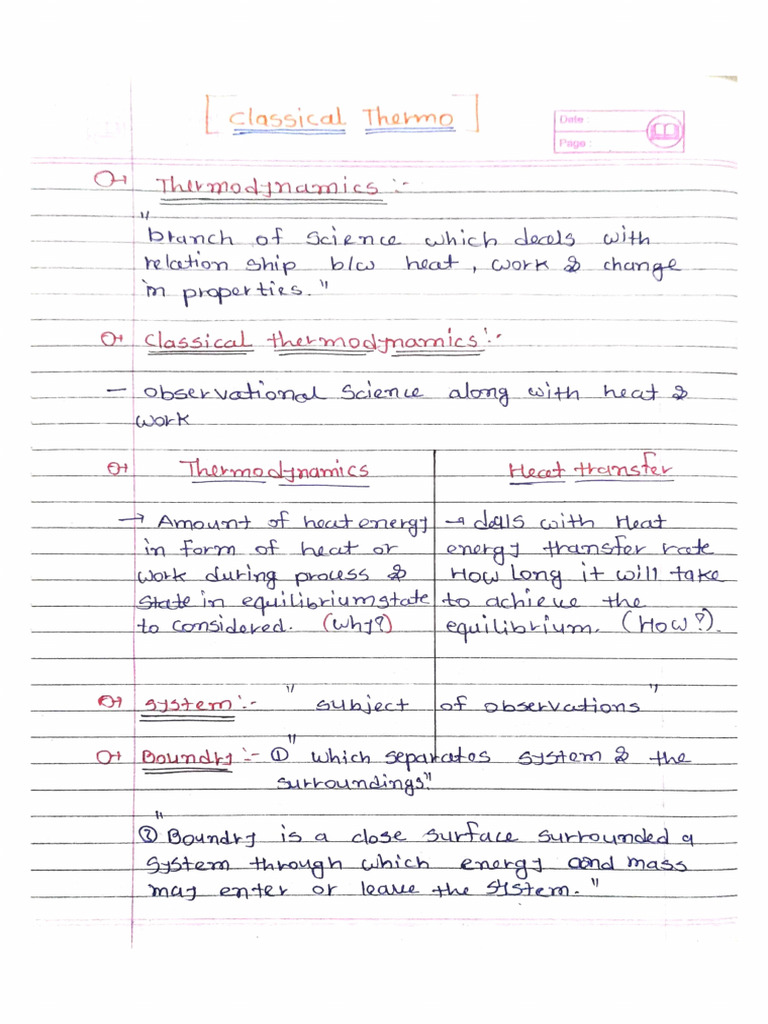 [ Classical Thermo ]
Date :
Page :
Thermodynamics :-
"branch of science which deals with
relation ship b/w heat, work & change
in properties."
Classical thermodynamics :-
- observational science along with heat &
work
Thermodynamics
→ Amount of heat energy
in form of heat or
work during process &
State in equilibrium state
to considered. (why?)
Heat transfer
→ deals with Heat
energy transfer rate
How Long it will take
to achieve the
equilibrium. (How?).
System :- "subject of observations"
Boundry :- ① "which separates system & the
surroundings."
"② Boundry is a close surface surrounded a
system through which energy and mass
may enter or leave the system."